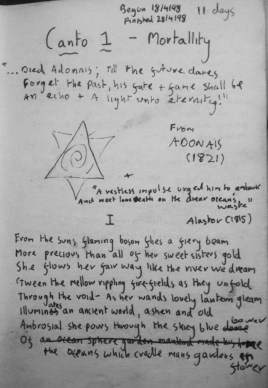 Begun 18/4/98
Finished 28/4/98
11 days
Canto 1 - Mortallity
"...Died Adonais; till the future dares
Forget the Past, his fate + fame shall be
An echo + A light unto eternity!"
From
ADONAIS
(1821)
+
"A restless impulse urged him to embark
And meet lone Death on the drear ocean's
waste"
Alastor (1815)
I
From the suns flaming bosom flies a fiery beam
More precious than all of her sweet sisters gold
She flows her fair way like the river we dream
'Tween the mellow rippling fire-fields as they unfold
Through the void - As her wands lovely lantern gleam
Illuminates an ancient world, ashen and old
Ambrosial she pours through the skiey blue bower
Of an ocean sphere garden mankind made his
the oceans which cradle mans gardens
flower